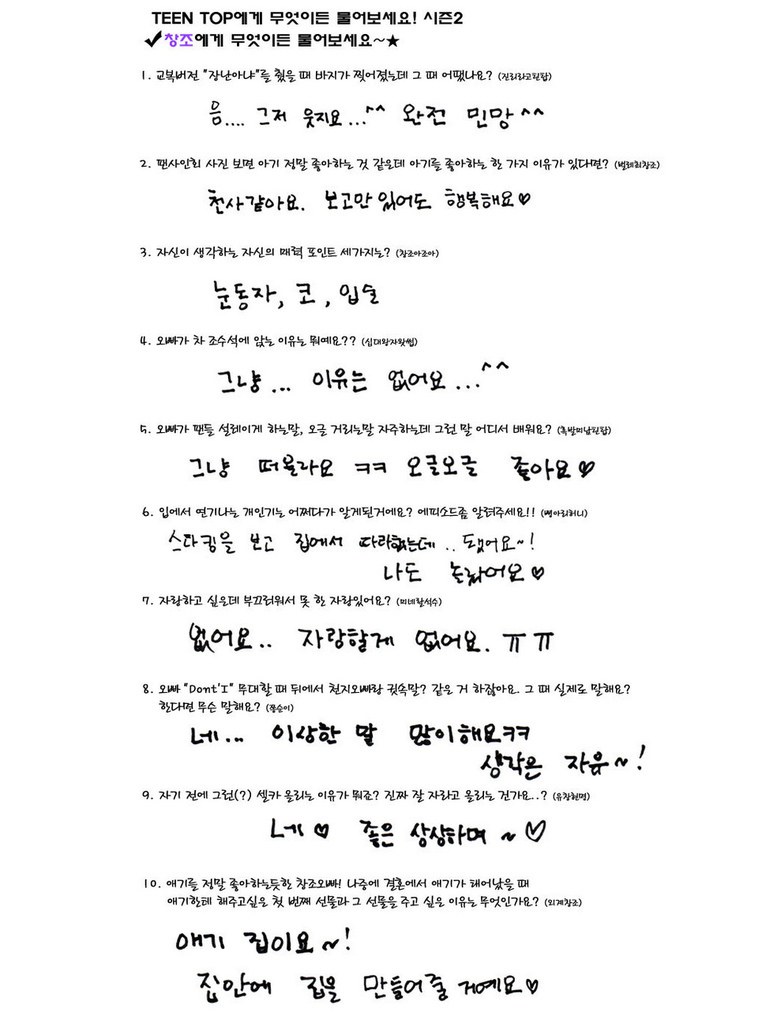 TEEN TOP에게 무엇이든 물어보세요! 시즌2
✓창조에게 무엇이든 물어보세요~★
1. 교복버전 "장난아냐"를 췄을 때 바지가 찢어졌는데 그 때 어땠나요? (진리라고전팝)
음.... 그저 웃지요...^^ 완전 민망^^
2. 팬사인회 사진 보면 아기 정말 좋아하는 것 같은데 아기를 좋아하는 한 가지 이유가 있다면? (벌레최창조)
천사같아요. 보고만 있어도 행복해요♡
3. 자신이 생각하는 자신의 매력 포인트 세가지는? (창조아조아)
눈동자, 코, 입술
4. 오빠가 차 조수석에 앉는 이유는 뭐예요?? (십대왕자왓썹)
그냥... 이유는 없어요...^^
5. 오빠가 팬들 설레이게 하는말, 오글 거리는말 자주하는데 그런 말 어디서 배워요?
그냥 떠올라요 ㅋㅋ 오글오글 좋아요♡
6. 입에서 연기나는 개인기는 어쩌다가 알게된거에요? 에피소드좀 알려주세요!! (병아리허니)
스타킹을 보고 집에서 따라했는데.. 됐어요~!
나도 놀랐어요♡
7. 자랑하고 싶은데 부끄러워서 못 한 자랑있어요? (미네랄석수)
없어요.. 자랑할게 없어요. ㅠㅠ
8. 오빠 "Dont'I" 무대할 때 뒤에서 천지오빠랑 귓속말? 같은 거 하잖아요. 그 때 실제로 말해요?
한다면 무슨 말해요? (쭌순이)
네... 이상한 말 많이해요ㅋㅋ
생각은 자유~!
9. 자기 전에 그런(?) 셀카 올리는 이유가 뭐죠? 진짜 잘 자라고 올리는 건가요..? (유창현명)
네♡ 좋은 상상하며~♡
10. 애기를 정말 좋아하는듯한 창조오빠! 나중에 결혼에서 애기가 태어났을 때
애기한테 해주고싶은 첫 번째 선물과 그 선물을 주고 싶은 이유는 무엇인가요? (외계창조)
애기 집이요~!
집안에 집을 만들어줄 거예요♡